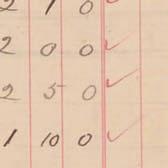 2 1 0 ✓
2 0 0 ✓
2 5 0 ✓
1 10 0 ✓